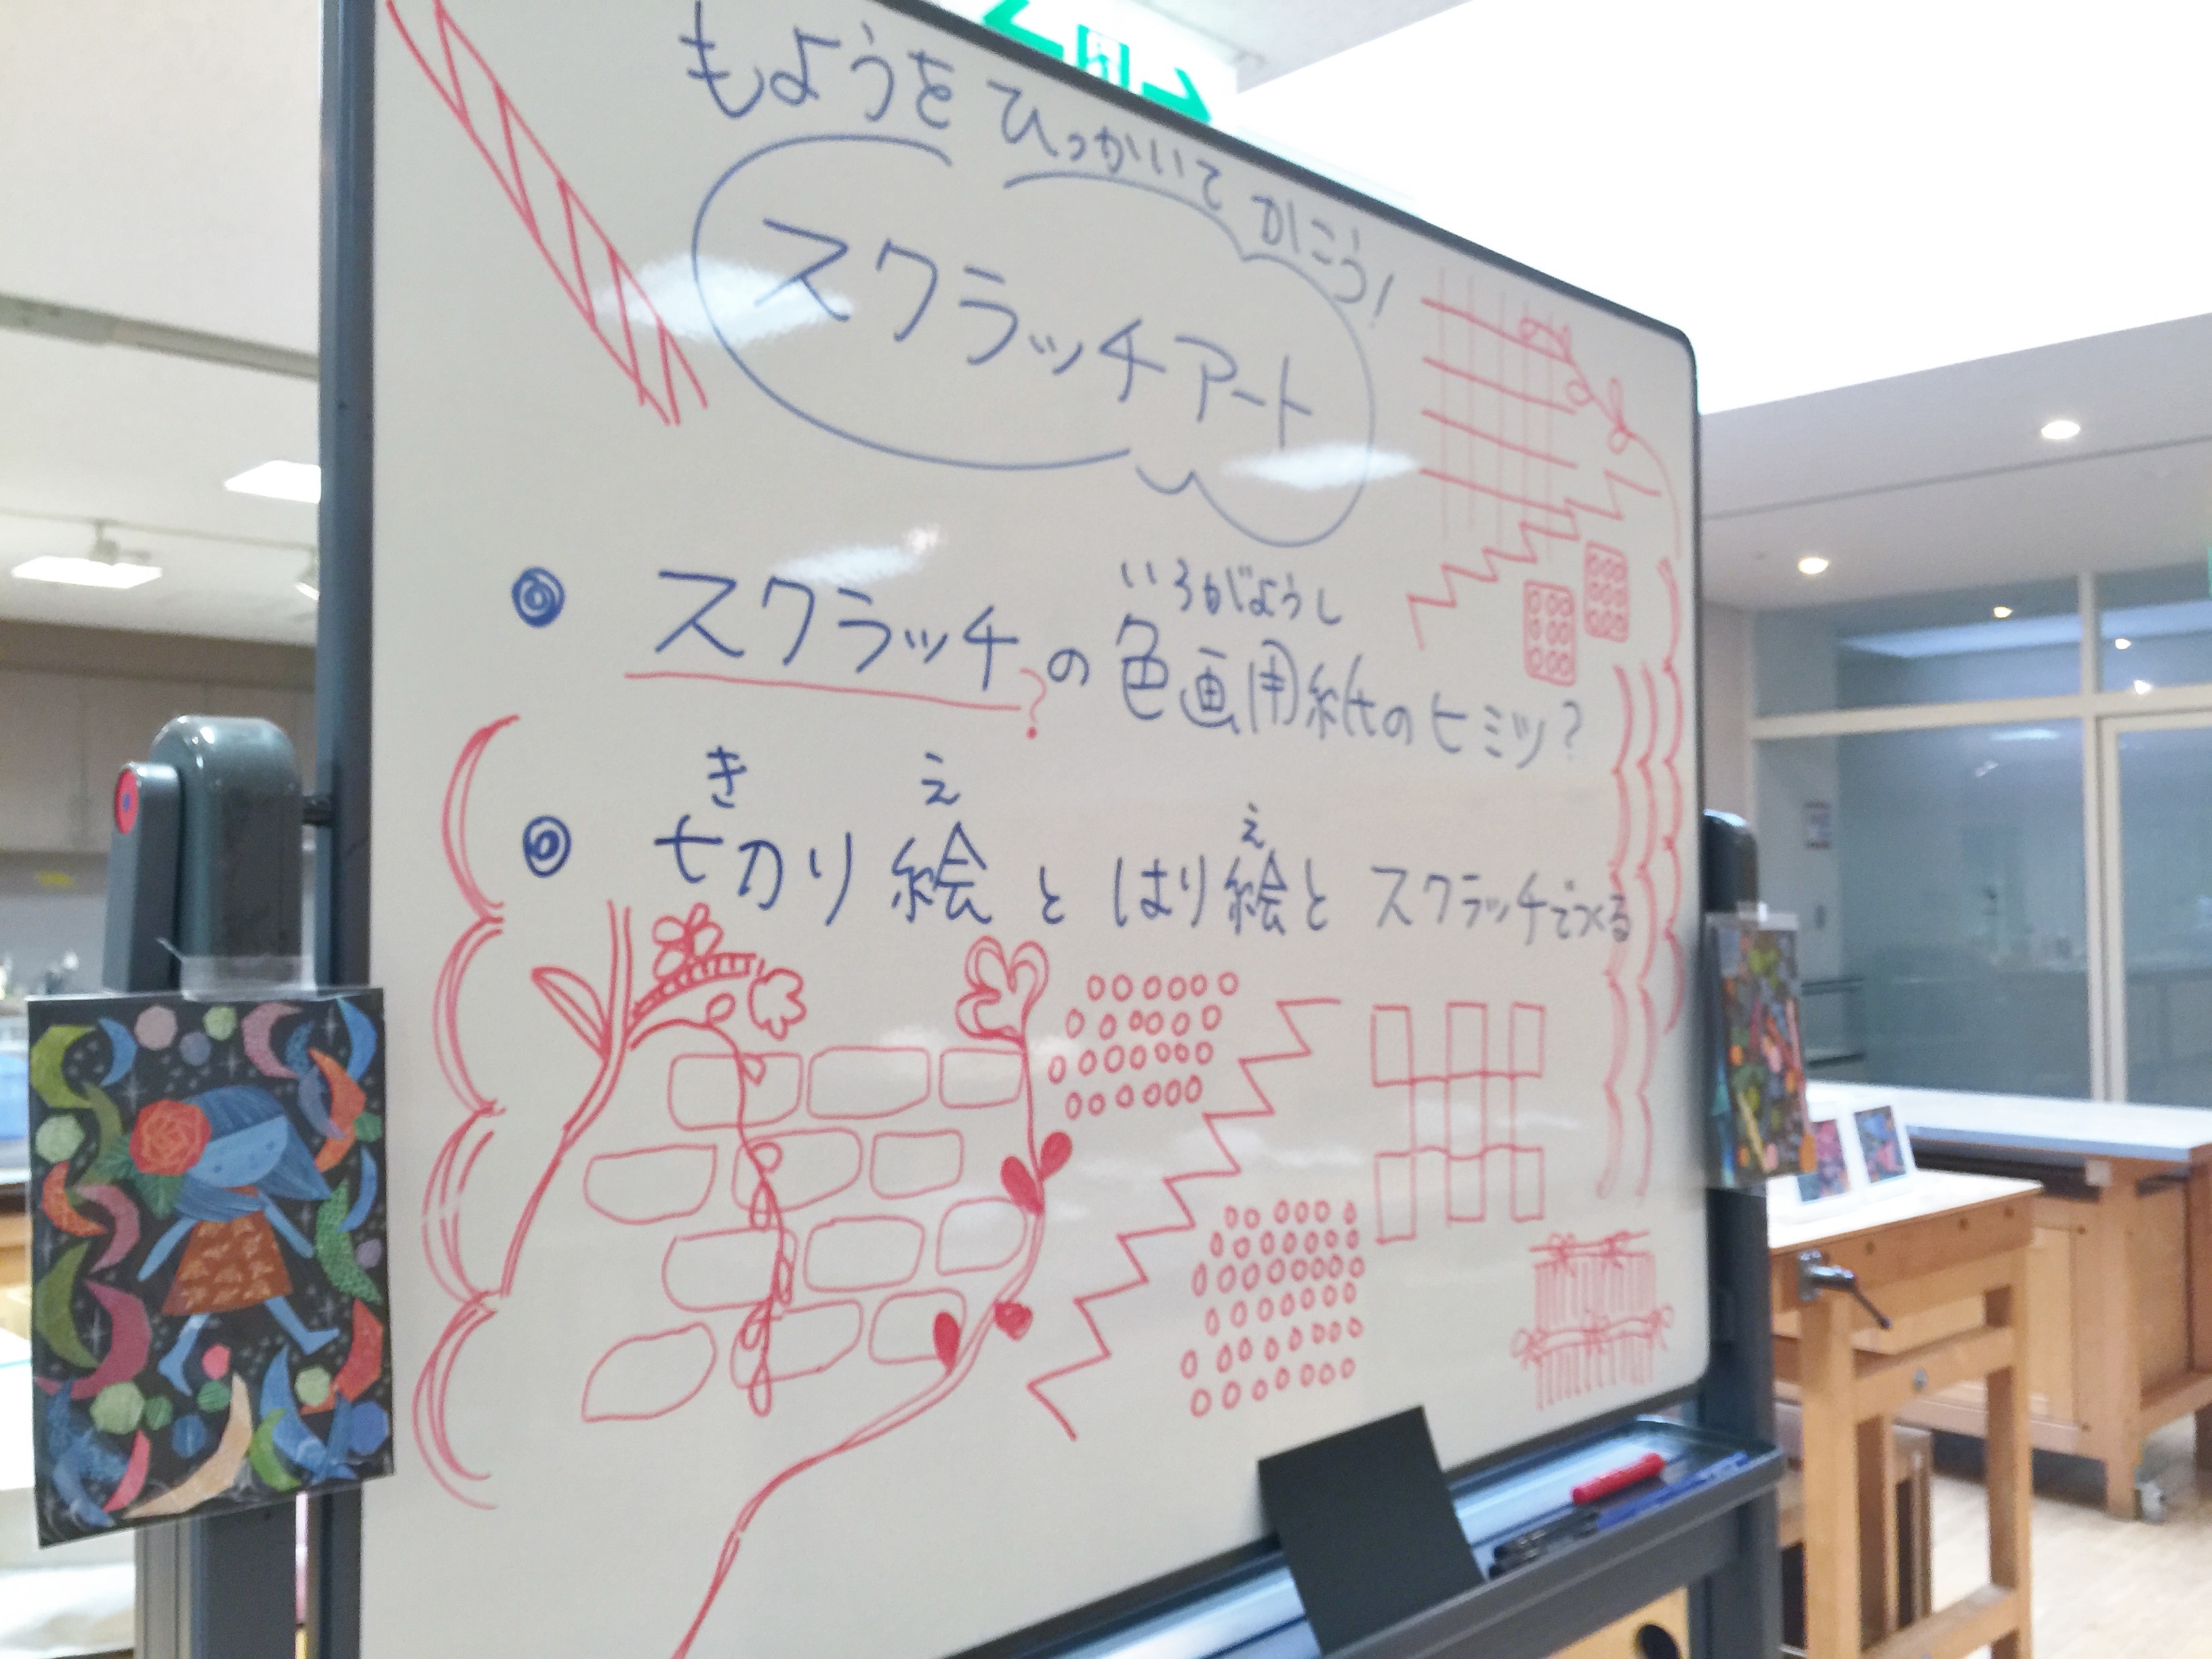 もようを ひっかいて かこう!
スクラッチアート
いろがようし
◎ スクラッチの色画用紙のヒミツ?
?
き え え
◎ 切り絵とはり絵とスクラッチでつくる